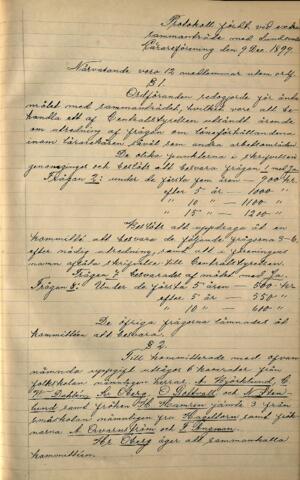 Protokoll fördt vid extra
sammanträde med Sundsvalls
Lärareförening den 9 Dec. 1899.
Närvarande voro 12 medlemmar utom ordf.
§ 1.
Ordföranden redogorde för ända-
målet med sammanträdet, hvilket vore att be-
handla ett af Centralstyrelsen utsändt ärende
om utredning af frågan om löneförhållandena
inom lärarekåren såväl som andra arbetsområden.
De olika punkterna i skrifvelsen
genomgingos och beslöts att besvara frågan 1 med Ja.
Frågan 2: under de första fem åren — 900 kr.
efter 5 år — 1000 "
" 10 " — 1100 "
" 15 " — 1200 "
Beslöts att uppdraga åt en
kommitté att besvara de följande frågorna 3-6.
efter nödig utredning, samt att i föreningens
namn afsända skrifvelse till Centralstyrelsen.
Frågan 7 besvarades af mötet med Ja.
Frågan 8: Under de första 5 åren — 500 kr
efter 5 år — 550 "
" 10 " — 600 "
De öfriga frågorna lämnades åt
kommittén att besvara.
§ 2.
Till kommitterade med ofvan
nämnda uppgift utsågos 6 kamrater från
folkskolan nämligen herrar A. Björklund, C.
W. Dahlin, Kr. Öberg, O. Sättvall och N. Sten-
lund samt fröken Th. Hamrén jämte 3 från
småskolan nämligen fru Hagblom samt frök-
narna A. Qvarnström och J. Ångman.
Hr Öberg äger att sammankalla
kommittéen.